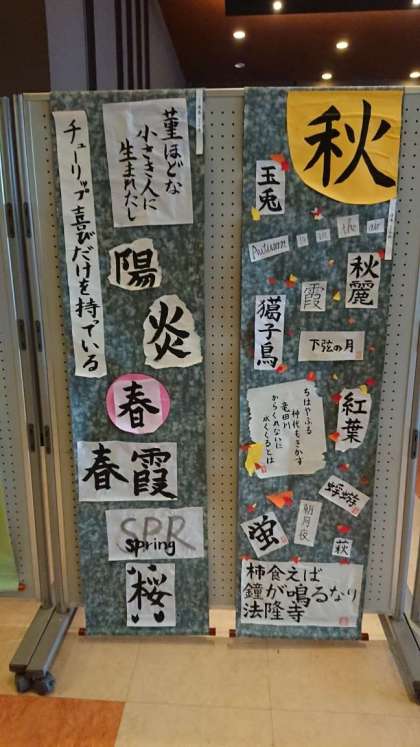 チューリップ喜びだけを持っている
菫ほどな
小さき人に
生まれたし
陽
炎
春
春霞
SPR
spring
桜
秋
玉兎
Autumn is in the air
秋麗
霞
獦子鳥
下弦の月
ちはやふる
神代もきかず
竜田川
からくれないに
水くくるとは
紅葉
蜉蝣
朝月夜
蛍
萩
柿食えば
鐘が鳴るなり
法隆寺